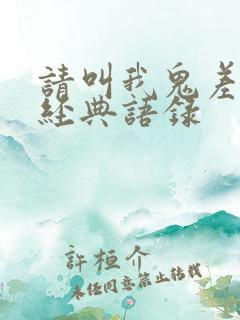 請叫我鬼差
經典語錄
許桓介
未经同意禁止转载